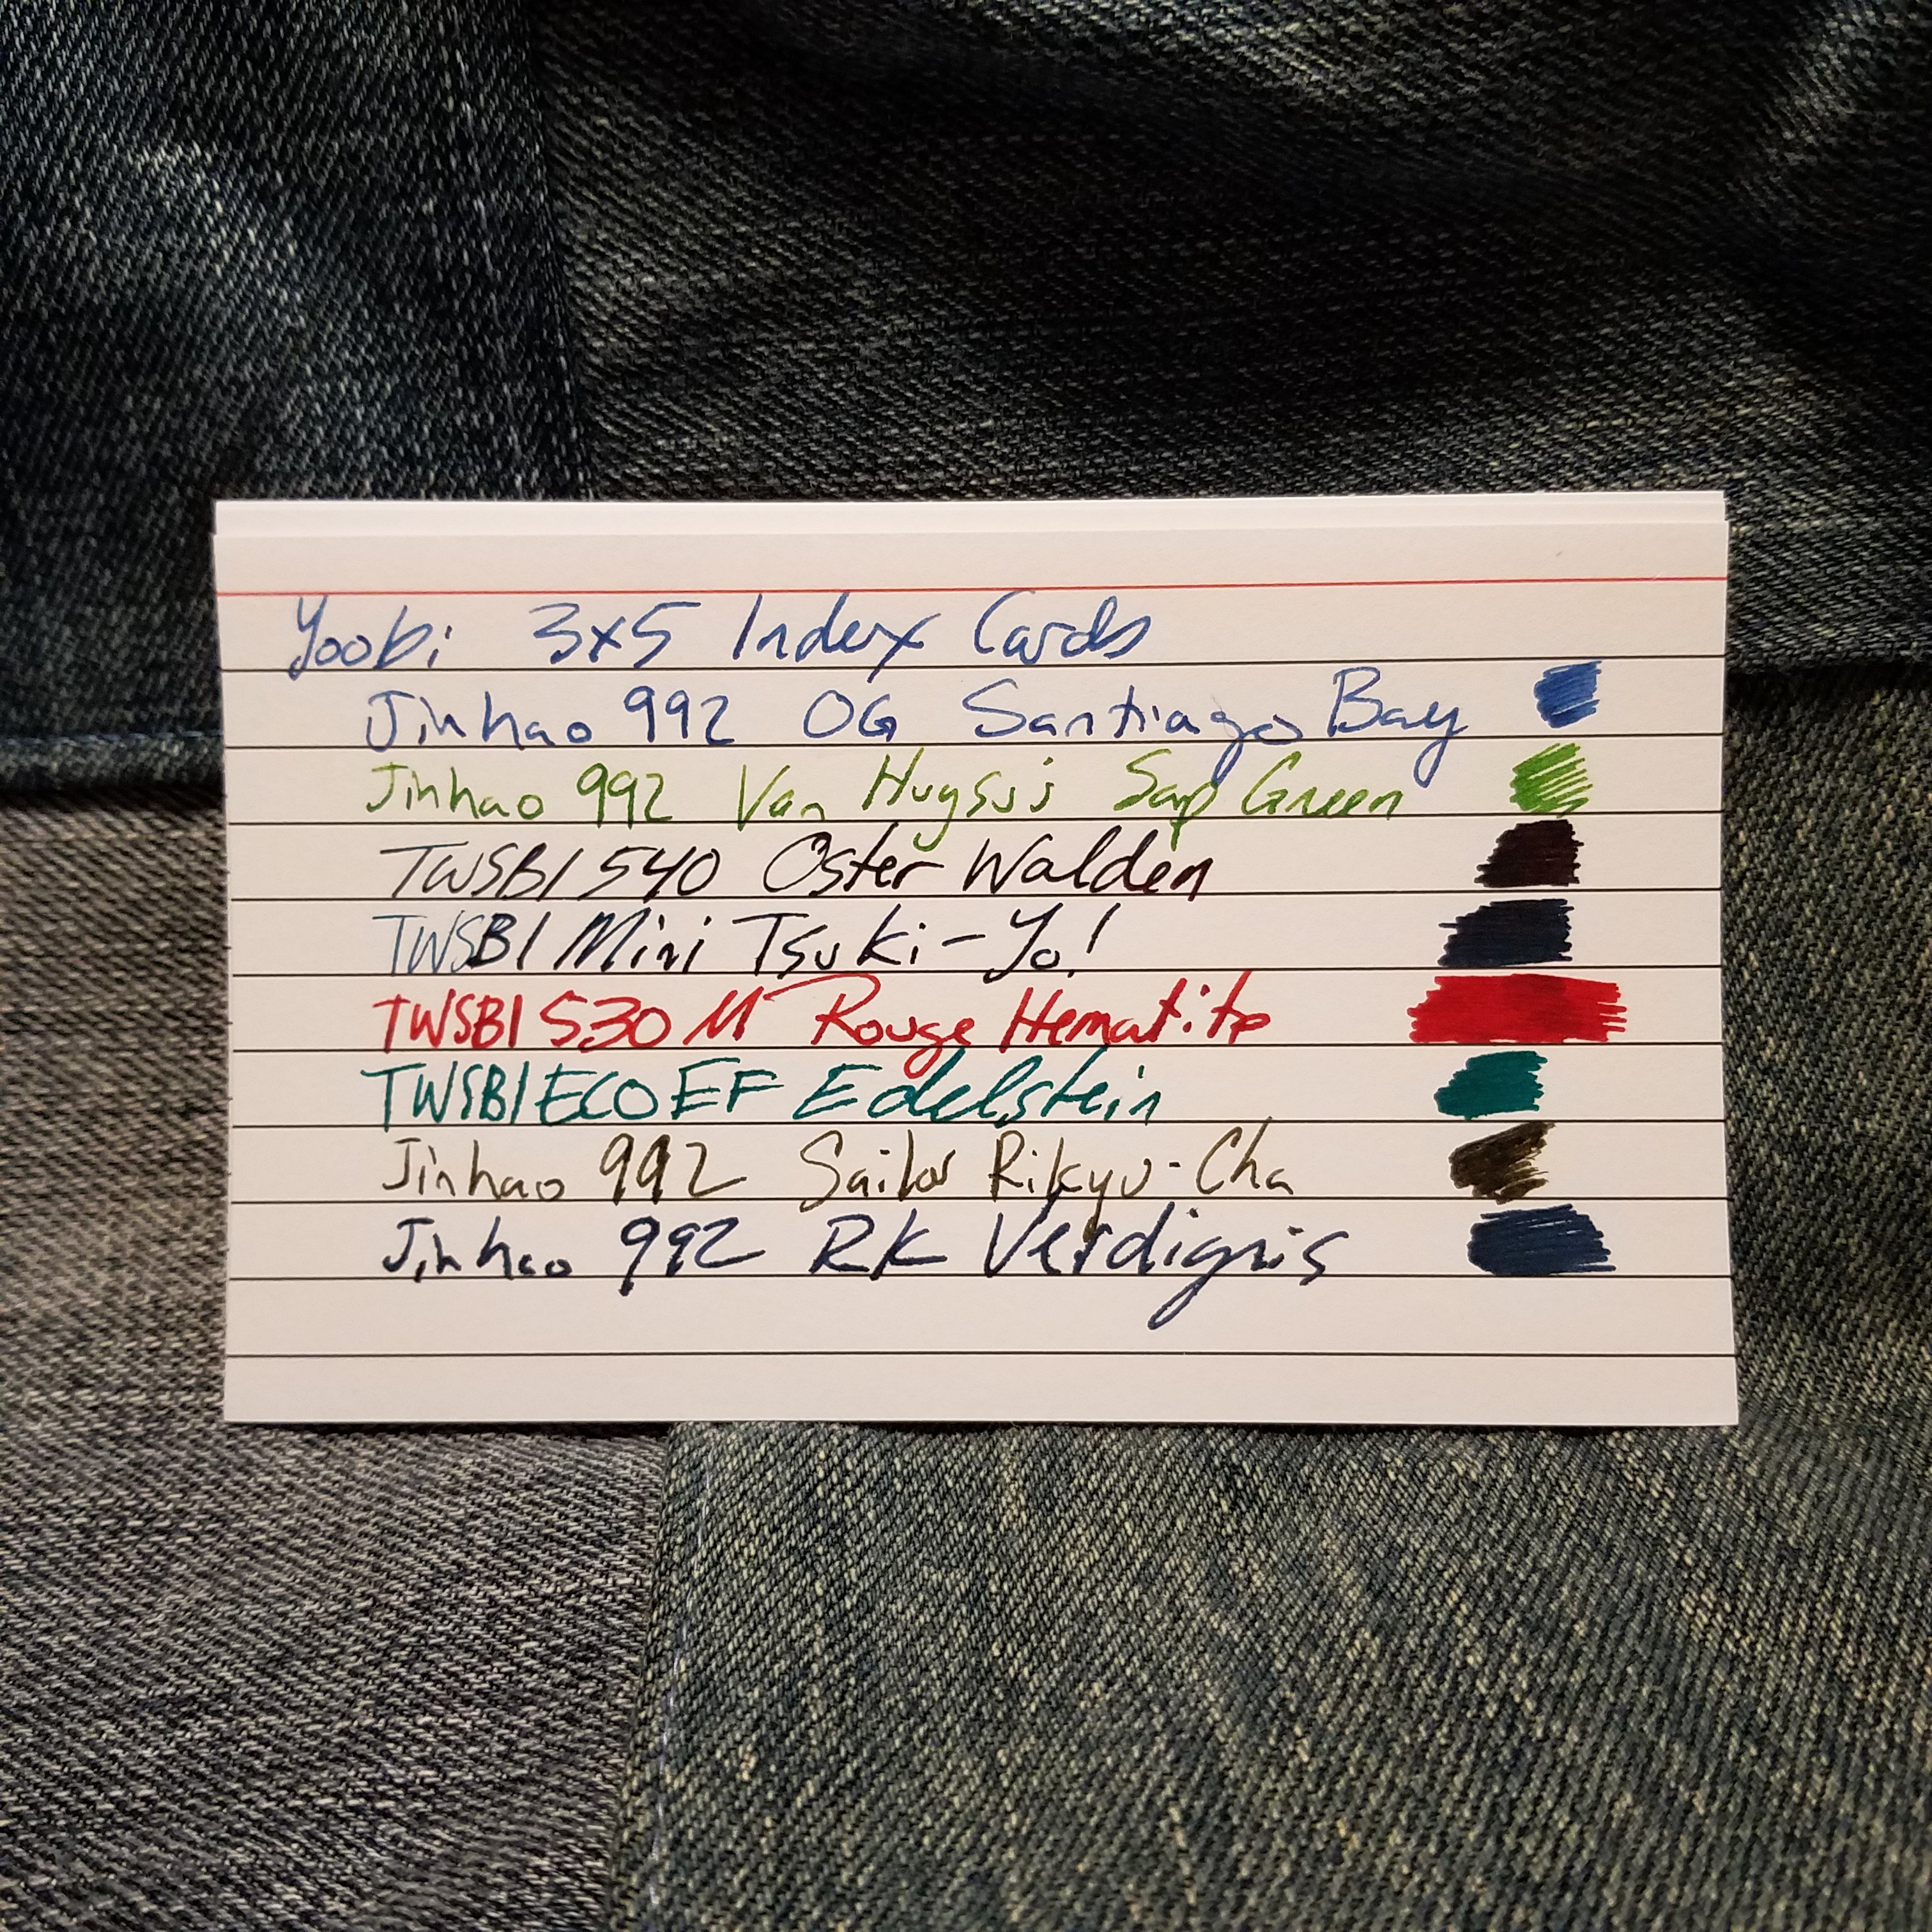 Yoobi 3x5 Index Cards
Jinhao 992 OG Santiago Bay
Jinhao 992 Van Huysis Sap Green
TWSBI 540 Oster Walden
TWSBI Mini Tsuki-Yo!
TWSBI 530 M Rouge Hematite
TWSBI ECO EF Edelstein
Jinhao 992 Sailor Rikyu-Cha
Jinhao 992 RK Verdigris